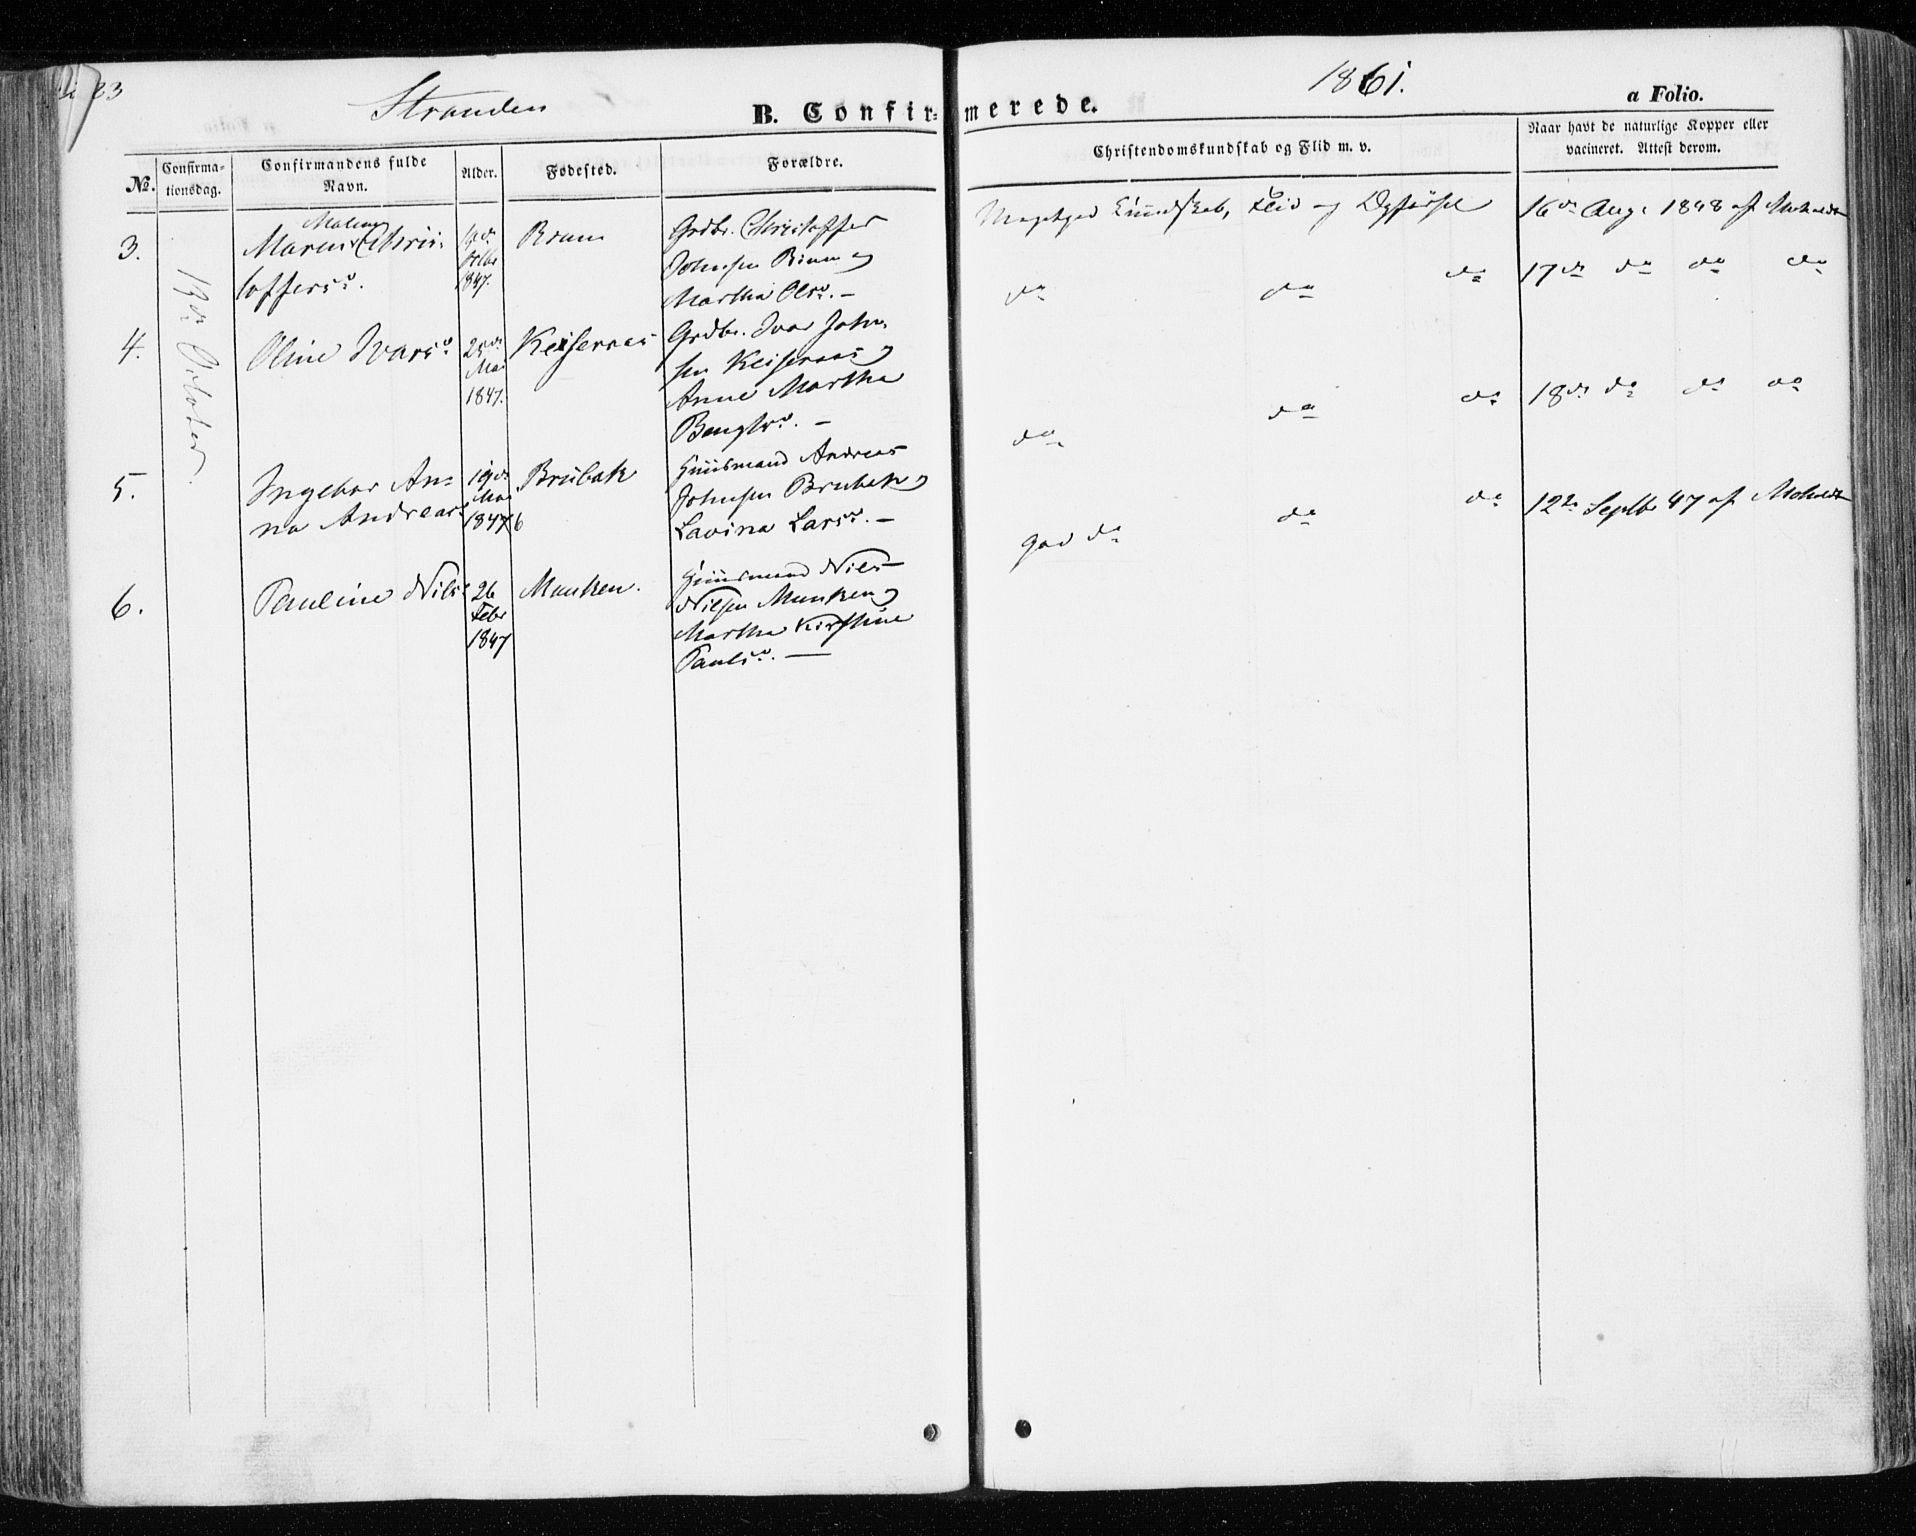 Stranden
B. Confirmerede.
1861.
a Folio.
No.
Confirma-
tionsdag.
Confirmandens fulde
Navn.
Alder.
Fødested.
Forældre.
Christendomskundskab og Flid m. v.
Naar havt de naturlige Kopper eller
vacineret. Attest derom.
3.
Malene
Christ-
offersd.
Octbr
1847.
Grdbr. Christoffer
Johnsen
Martha Olsd. —
Kundskab, Flid og Opførsel
16de Aug. 1848 af
do do do 17de do do do
4.
Oline Ivarsd.
25de
Mai
1847.
Keiseraas
Grdbr. Ivar John-
sen Keiseraas og
Anne Martha
Bengtsd. —
do do do 18de do do do
5.
Ingebor An-
na Andreasd.
19de
Mai
1847
Brubak
Huusmand Andreas
Johnsen Brubak og
Lavina Larsd. —
god do do do 12te Septbr 47 af
6.
Pauline Nilsd.
26
Febr
1847
Munken.
Huusmand Nils
Nilsen Munken og
Martha Kirstine
Paulsd. —
19de October.